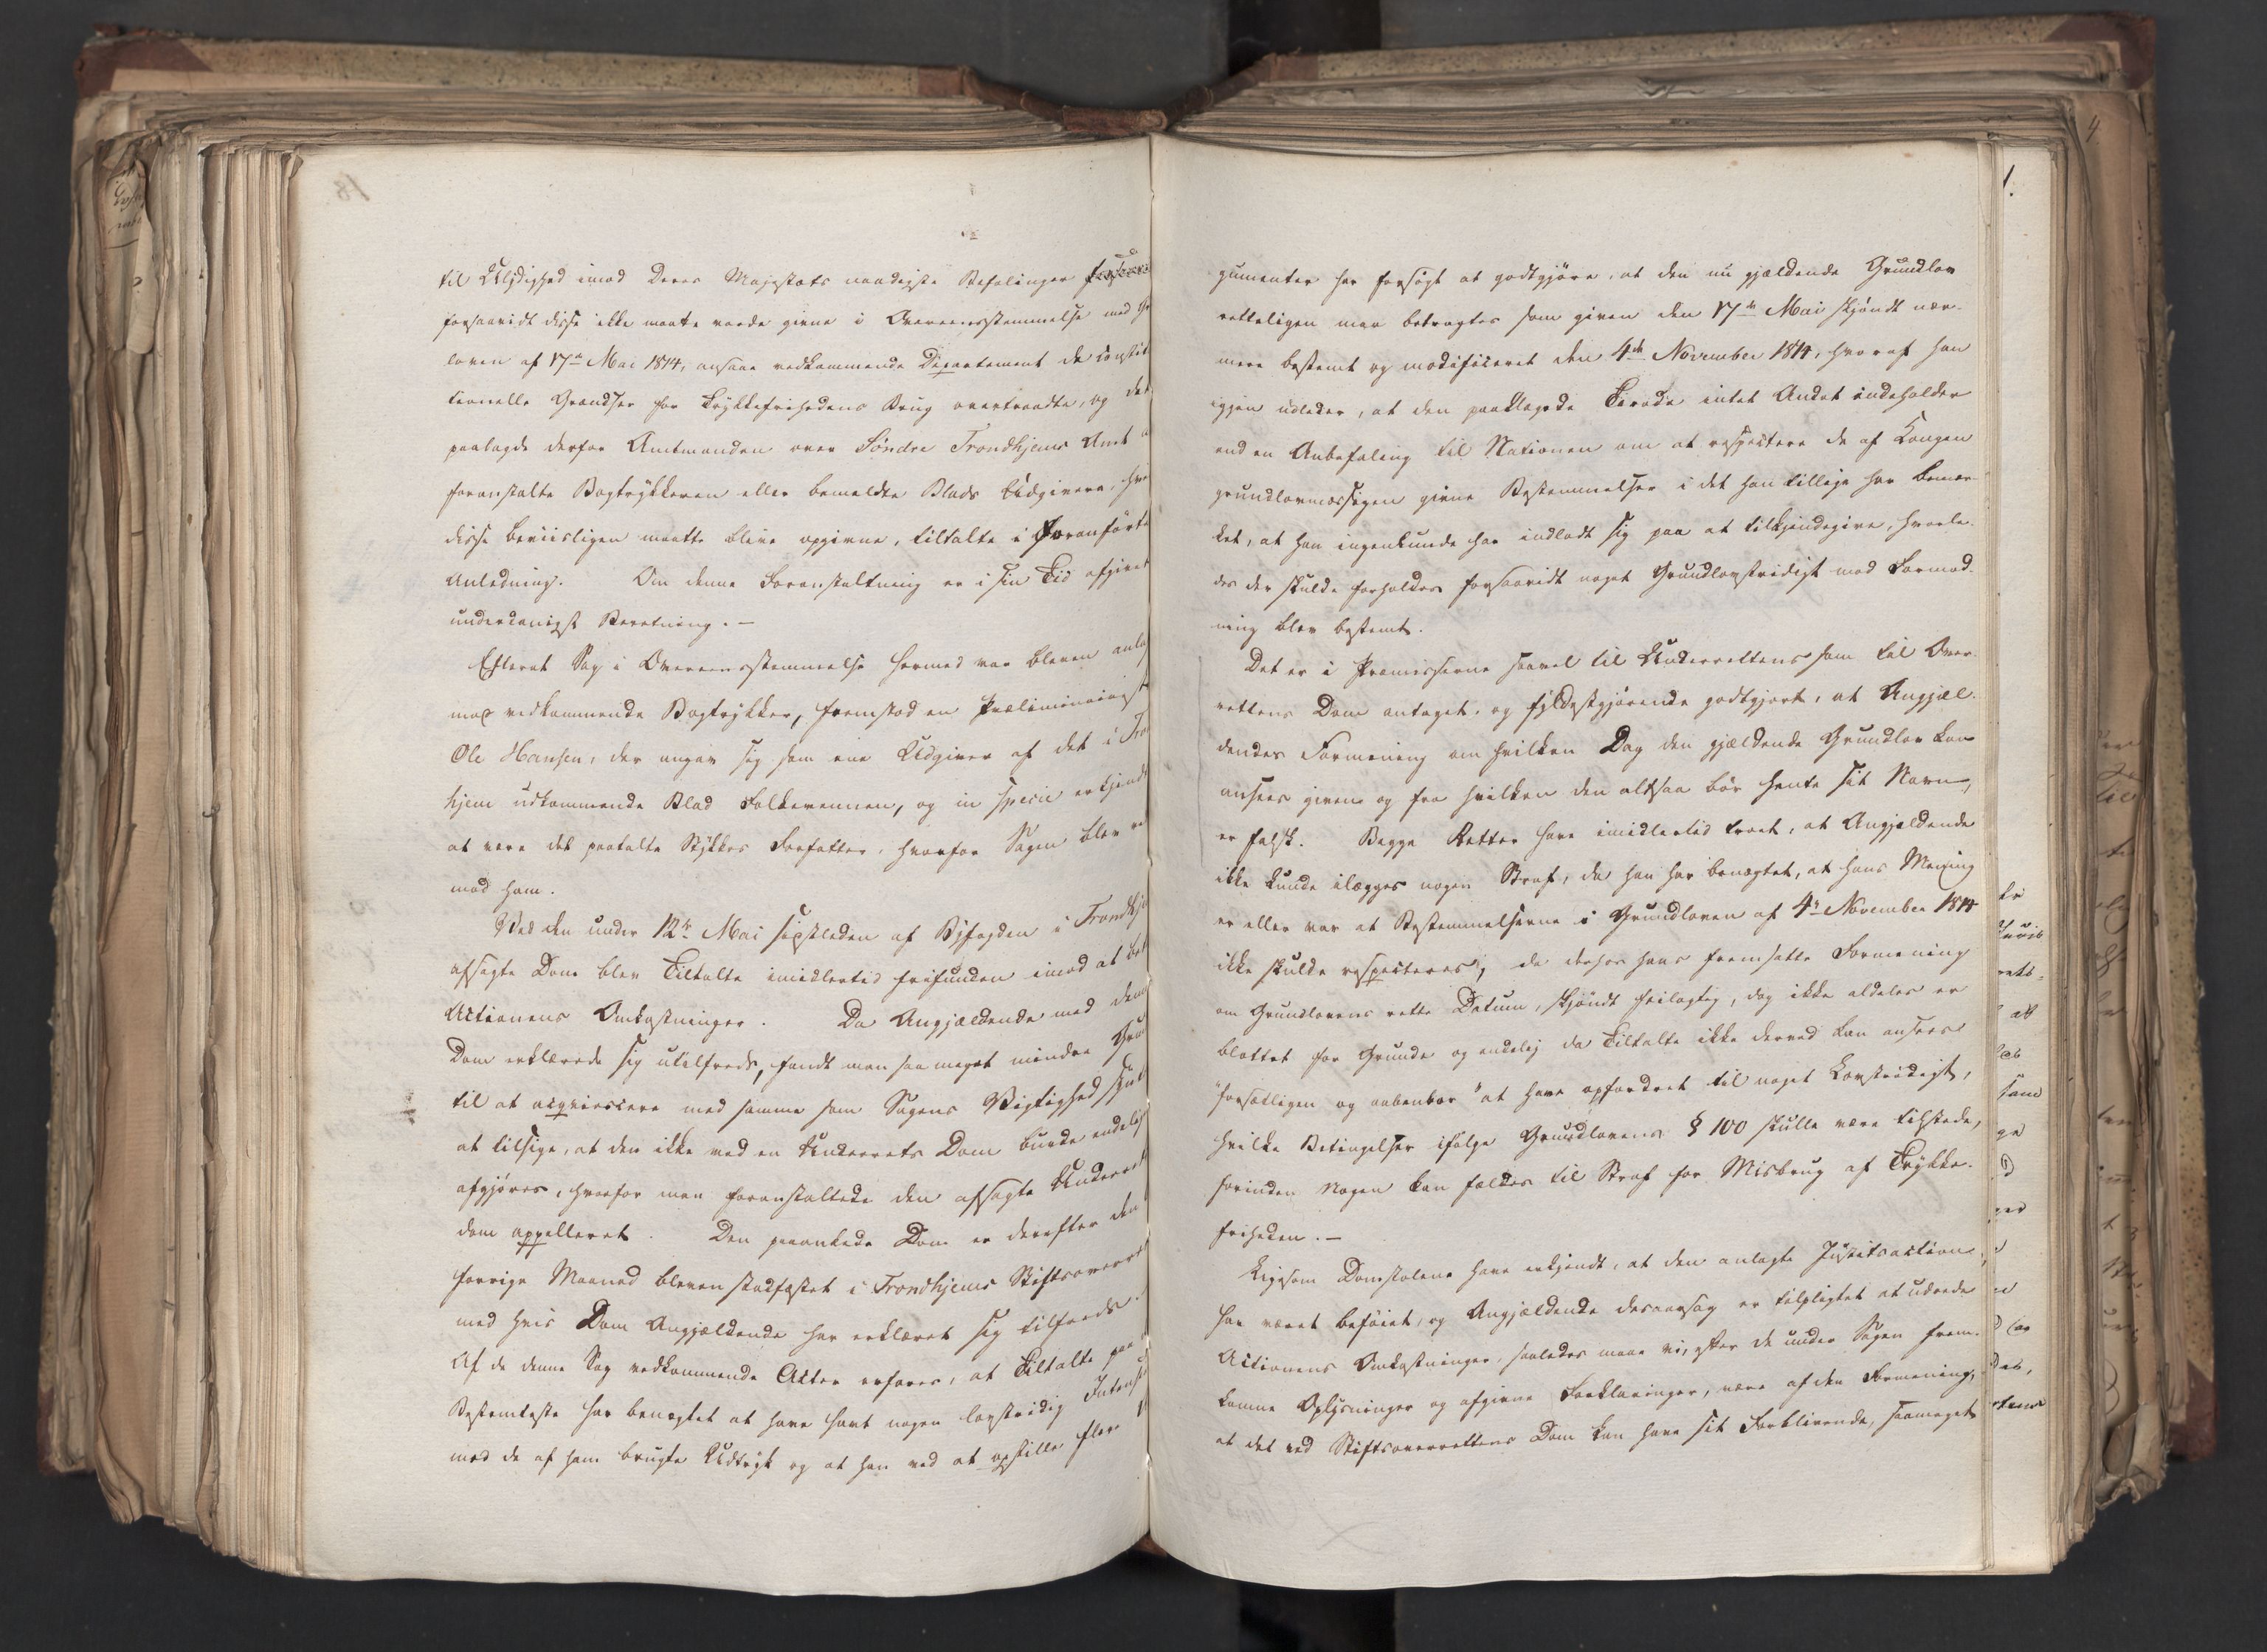 til Ulydighed imod Deres Majestæts naadigste Befalinger
forsaavidt disse ikke maatte vorde givne i Overeensstemmelse med
loven af 17de Mai 1814, ansaae vedkommende Departement de constit
tionelle Grændser for Trykkefrihedens Brug overtraadte, og det
paalagde derfor Amtmanden over Søndre Trondhjems Amt a
foranstalte Bogtrykkeren eller bemeldte Blads Udgivere, hvis
disse beviisligen maatte blive opgivne, tiltalte i foranførte
Anledning. Om denne Foranstaltning er i sin Tid afgivet
underdanigst Beretning. —
Efterat Sag i Overeensstemmelse hermed var bleven anlag
mod vedkommende Bogtrykker, fremstod en Præliminairist
Ole Hansen, der angav sig som ene Udgiver af det i Tro
hjem udkommende Blad Folkevennen, og in specie erkjendt
at være det paatalte Stykkes Forfatter, hvorfor Sagen blev
mod ham.
Ved den under 12te Mai sidstleden af Byfogden i Trondhje
afsagte Dom blev Tiltalte imidlertid frifunden imod at bet
Actionens Omkostninger. Da Angjældende med denne
Dom erklærede sig utilfreds, fandt man saa meget mindre Gru
til at acqviescere med samme som Sagens Vigtighed syn
at tilsige, at den ikke ved en Underrets Dom burde endelig
afgjøres, hvorfor man foranstaltede den afsagte Underret
dom appelleret. Den paaankede Dom er derefter den
forrige Maaned bleven stadfæstet i Trondhjems Stiftsoverret
med hvis Dom Angjældende har erklæret sig tilfreds.
Af de denne Sag vedkommende Acter erfares, at Tiltalte paa
Bestemteste har benægtet at have havt nogen lovstridig Intens
med de af ham brugte Udtryk og at han ved at opstille flere
gumenter har forsøgt at godtgjøre, at den nu gjældende Grundlov
retteligen maa betragtes som given den 17de Mai skjøndt nær-
mere bestemt og modificeret den 4de November 1814, hvoraf han
igjen udleder, at den paaklagede Tirade intet Andet indeholder
end en Anbefaling til Nationen om at respectere de af Kongen
grundlovmæssigen givne Bestemmelser i det han tillige har bemær-
ket, at han ingenlunde har indladt sig paa at tilkjendegive, hvorle-
des der skulde forholdes forsaavidt noget Grundlovstridigt mod Formod-
ning blev bestemt.
Det er i Præmisserne saavel til Underrettens som til Over-
rettens Dom antaget, og fyldestgjørende godtgjort, at Angjæl-
dendes Formening om hvilken Dag den gjældende Grundlov kan
ansees given og fra hvilken den altsaa bør hente sit Navn,
er falsk. Begge Retter have imidlertid troet, at Angjældende
ikke kunde ilægges nogen Straf, da han har benægtet, at hans Mening
er eller var at Bestemmelserne i Grundloven af 4de November 1814
ikke skulde respecteres, da derhos hans fremsatte Formening
om Grundlovens rette Datum, skjøndt feilagtig, dog ikke aldeles er
blottet for Grunde og endelig da Tiltalte ikke derved kan ansees
"forsætligen og aabenbar" at have opfordret til noget Lovstridigt,
hvilke Betingelser ifølge Grundlovens § 100 skulle være tilstede,
forinden Nogen kan fældes til Straf for Misbrug af Trykke-
friheden. —
Ligesom Domstolene have erkjendt, at den anlagte Justitsaction
har været beføiet, og Angjældende desaarsag er tilpligtet at udrede
Actionens Omkostninger, saaledes maae vi, efter de under Sagen frem-
komne Oplysninger og afgivne Forklaringer, være af den Formening,
at det ved Stiftsoverrettens Dom kan have sit Forblivende, saameget